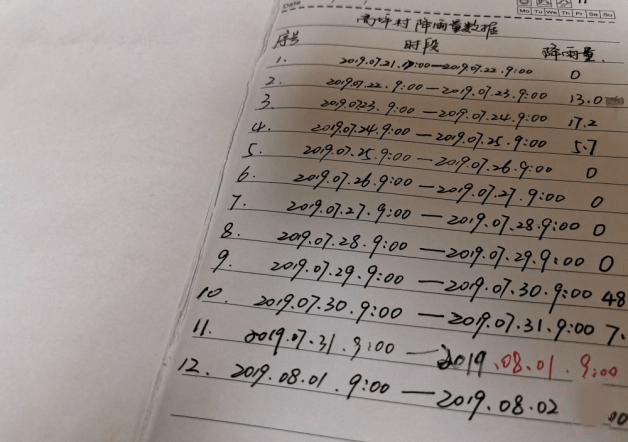 Date
Mo Tu We Th Fr Sa Su
高坪村降雨量数据
序号 时段 降雨量
1. 2019.07.21.9:00—2019.07.22.9:00 0
2. 2019.07.22.9:00—2019.07.23.9:00 13.0
3. 2019.07.23.9:00—2019.07.24.9:00 17.2
4. 2019.07.24.9:00—2019.07.25.9:00 5.7
5. 2019.07.25.9:00—2019.07.26.9:00 0
6. 2019.07.26.9:00—2019.07.27.9:00 0
7. 2019.07.27.9:00—2019.07.28.9:00 0
8. 2019.07.28.9:00—2019.07.29.9:00 0
9. 2019.07.29.9:00—2019.07.30.9:00 48
10. 2019.07.30.9:00—2019.07.31.9:00 7.
11. 2019.07.31.9:00—2019.08.01.9:00
12. 2019.08.01.9:00—2019.08.02 00